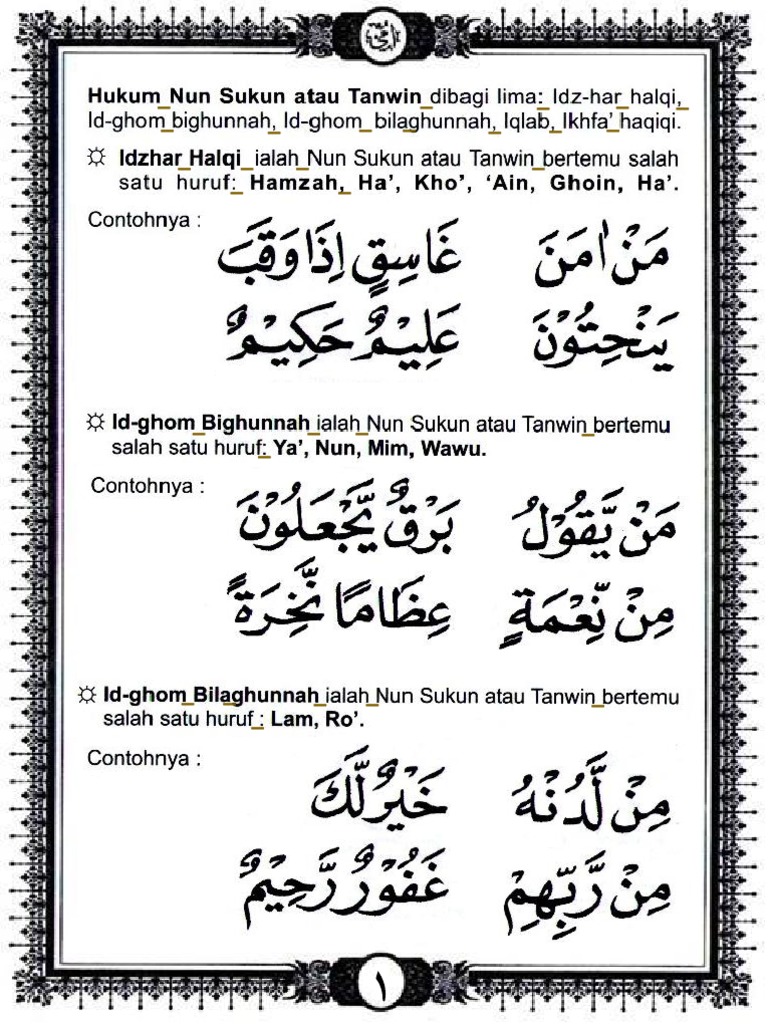 Hukum Nun Sukun atau Tanwin dibagi lima: Idz-har halqi,
Id-ghom bighunnah, Id-ghom bilaghunnah, Iqlab, Ikhfa' haqiqi.
Idzhar Halqi ialah Nun Sukun atau Tanwin bertemu salah
satu huruf: Hamzah, Ha', Kho', 'Ain, Ghoin, Ha'.
Contohnya :
مَنْ اٰمَنَ غَاسِقٍ اِذَا وَقَبَ
يَنْحِتُوْنَ عَلِيْمٌ حَكِيْمٌ
Id-ghom Bighunnah ialah Nun Sukun atau Tanwin bertemu
salah satu huruf: Ya', Nun, Mim, Wawu.
Contohnya :
مَنْ يَّقُوْلُ بَرْقٌ يَّجْعَلُوْنَ
مِنْ نِّعْمَةٍ عِظَامًا نَّخِرَةً
Id-ghom Bilaghunnah ialah Nun Sukun atau Tanwin bertemu
salah satu huruf : Lam, Ro'.
Contohnya :
مِنْ لَّدُنْهُ خَيْرٌ لَّكَ
مِنْ رَّبِّهِمْ غَفُوْرٌ رَّحِيْمٌ
١